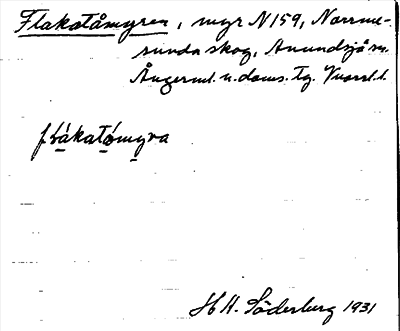 Flakatåmyren, myr N 159, Norrme-
sunda skog, Anundsjö sn.
Ångerml. n. doms. tg.
flákatómyra
H H. Söderberg 1931